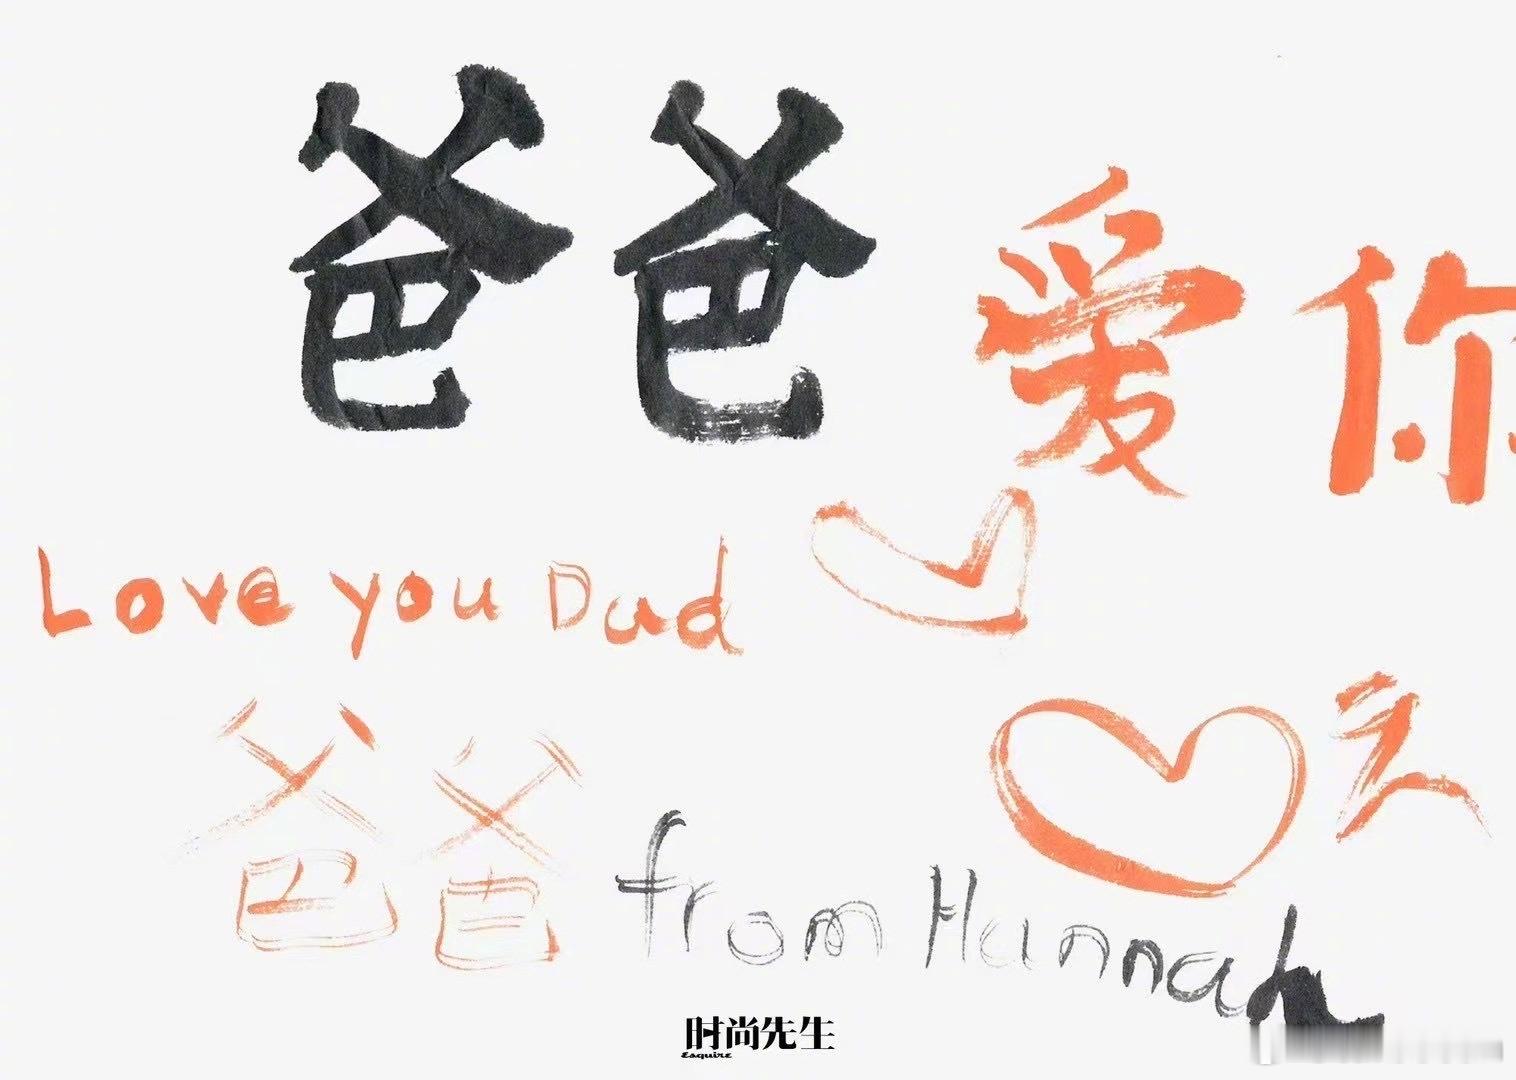 爸爸 爱你
Love you Dad
爸爸
from Hannah
时尚先生
Esquire